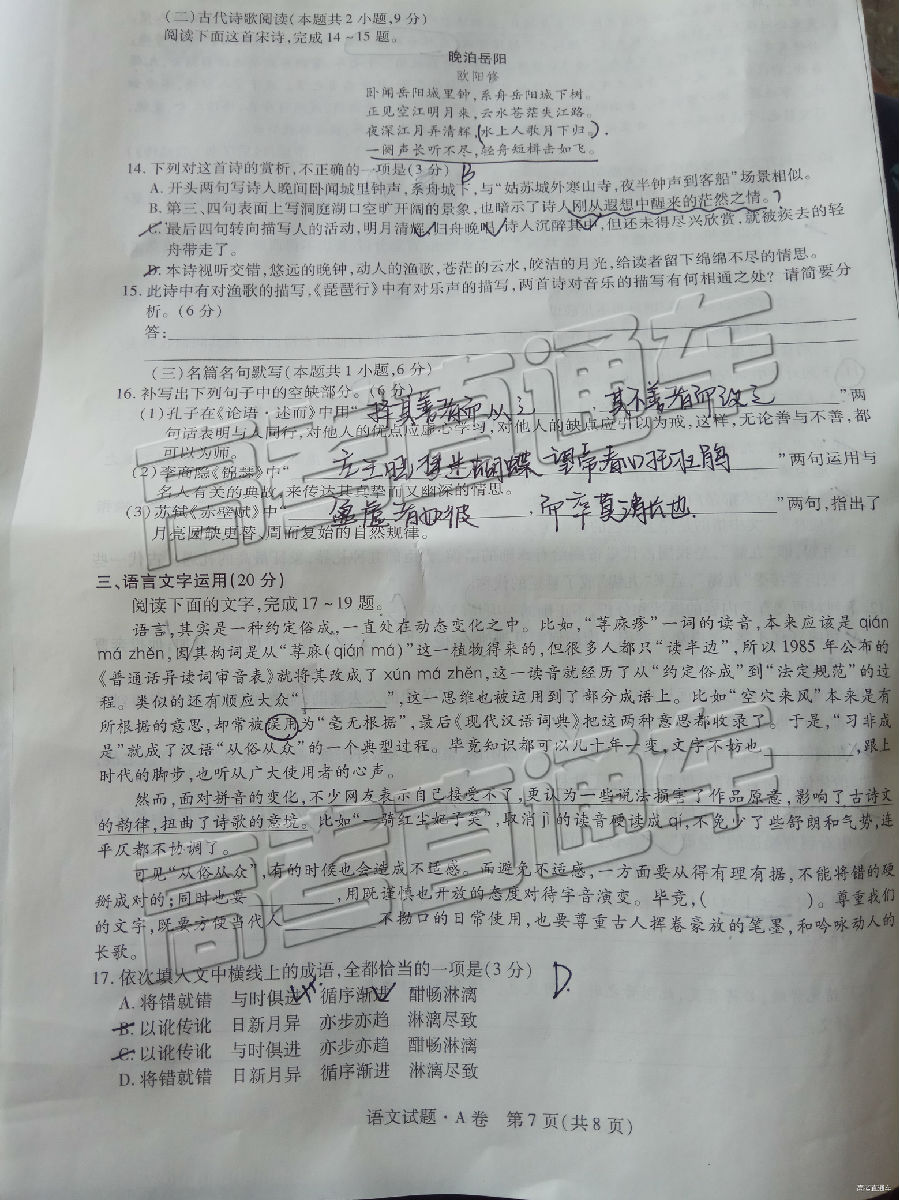 (二)古代诗歌阅读(本题共2小题,9分)
阅读下面这首宋诗,完成14~15题。
晚泊岳阳
欧阳修
卧闻岳阳城里钟,系舟岳阳城下树。
正见空江明月来,云水苍茫失江路。
夜深江月弄清辉,(水上人歌月下归。)
一阕声长听不尽,轻舟短楫去如飞。
14. 下列对这首诗的赏析,不正确的一项是(3分) B
A. 开头两句写诗人晚间卧闻城里钟声,系舟城下,与“姑苏城外寒山寺,夜半钟声到客船”场景相似。
B. 第三、四句表面上写洞庭湖口空旷开阔的景象,也暗示了诗人刚从遐想中醒来的茫然之情。?
C. 最后四句转向描写人的活动,明月清辉,归舟晚唱,诗人沉醉其中,但还未得尽兴欣赏,就被疾去的轻
舟带走了。
D. 本诗视听交错,悠远的晚钟,动人的渔歌,苍茫的云水,皎洁的月光,给读者留下绵绵不尽的情思。
15. 此诗中有对渔歌的描写,《琵琶行》中有对乐声的描写,两首诗对音乐的描写有何相通之处?请简要分
析。(6分)
答:
(三)名篇名句默写(本题共1小题,6分)
16. 补写出下列句子中的空缺部分。(6分)
(1)孔子在《论语·述而》中用“择其善者而从之 其不善者而改之”两
句话表明与人同行,对他人的优点应虚心学习,对他人的缺点应引以为戒,这样,无论善与不善,都
可以为师。
(2)李商隐《锦瑟》中“庄生晓梦迷蝴蝶 望帝春心托杜鹃”两句运用与
名人有关的典故,来传达其真挚而又幽深的情思。
(3)苏轼《赤壁赋》中“盈虚者如彼,而卒莫消长也”两句,指出了
月亮圆缺更替,周而复始的自然规律。
三、语言文字运用(20分)
阅读下面的文字,完成17~19题。
语言,其实是一种约定俗成,一直处在动态变化之中。比如,“荨麻疹”一词的读音,本来应该是qián
má zhěn,因其构词是从“荨麻(qián má)”这一植物得来的,但很多人都只“读半边”,所以1985年公布的
《普通话异读词审音表》就将其改成了xún má zhěn,这一读音就经历了从“约定俗成”到“法定规范”的过
程。类似的还有顺应大众“________”,这一思维也被运用到了部分成语上。比如“空穴来风”本来是有
所根据的意思,却常被误用为“毫无根据”,最后《现代汉语词典》把这两种意思都收录了。于是,“习非成
是”就成了汉语“从俗从众”的一个典型过程。毕竟知识都可以几十年一变,文字不妨也________,跟上
时代的脚步,也听从广大使用者的心声。
然而,面对拼音的变化,不少网友表示自己接受不了,更认为一些说法损害了作品原意,影响了古诗文
的韵律,扭曲了诗歌的意境。比如“一骑红尘妃子笑”,取消jì的读音硬读成qí,不免少了些舒朗和气势,连
平仄都不协调了。
可见“从俗从众”,有的时候也会造成不适感。而避免不适感,一方面要从得有理有据,不能将错的硬
掰成对的;同时也要________,用既谨慎也开放的态度对待字音演变。毕竟,( )。尊重我们
的文字,既要方便当代人________不拗口的日常使用,也要尊重古人挥卷豪放的笔墨,和吟咏动人的
长歌。
17. 依次填入文中横线上的成语,全都恰当的一项是(3分) D.
A. 将错就错 与时俱进 循序渐进 酣畅淋漓
B. 以讹传讹 日新月异 亦步亦趋 淋漓尽致
C. 以讹传讹 与时俱进 亦步亦趋 酣畅淋漓
D. 将错就错 日新月异 循序渐进 淋漓尽致
语文试题·A卷 第7页(共8页)
高考直通车
高考直通车
高考直通车